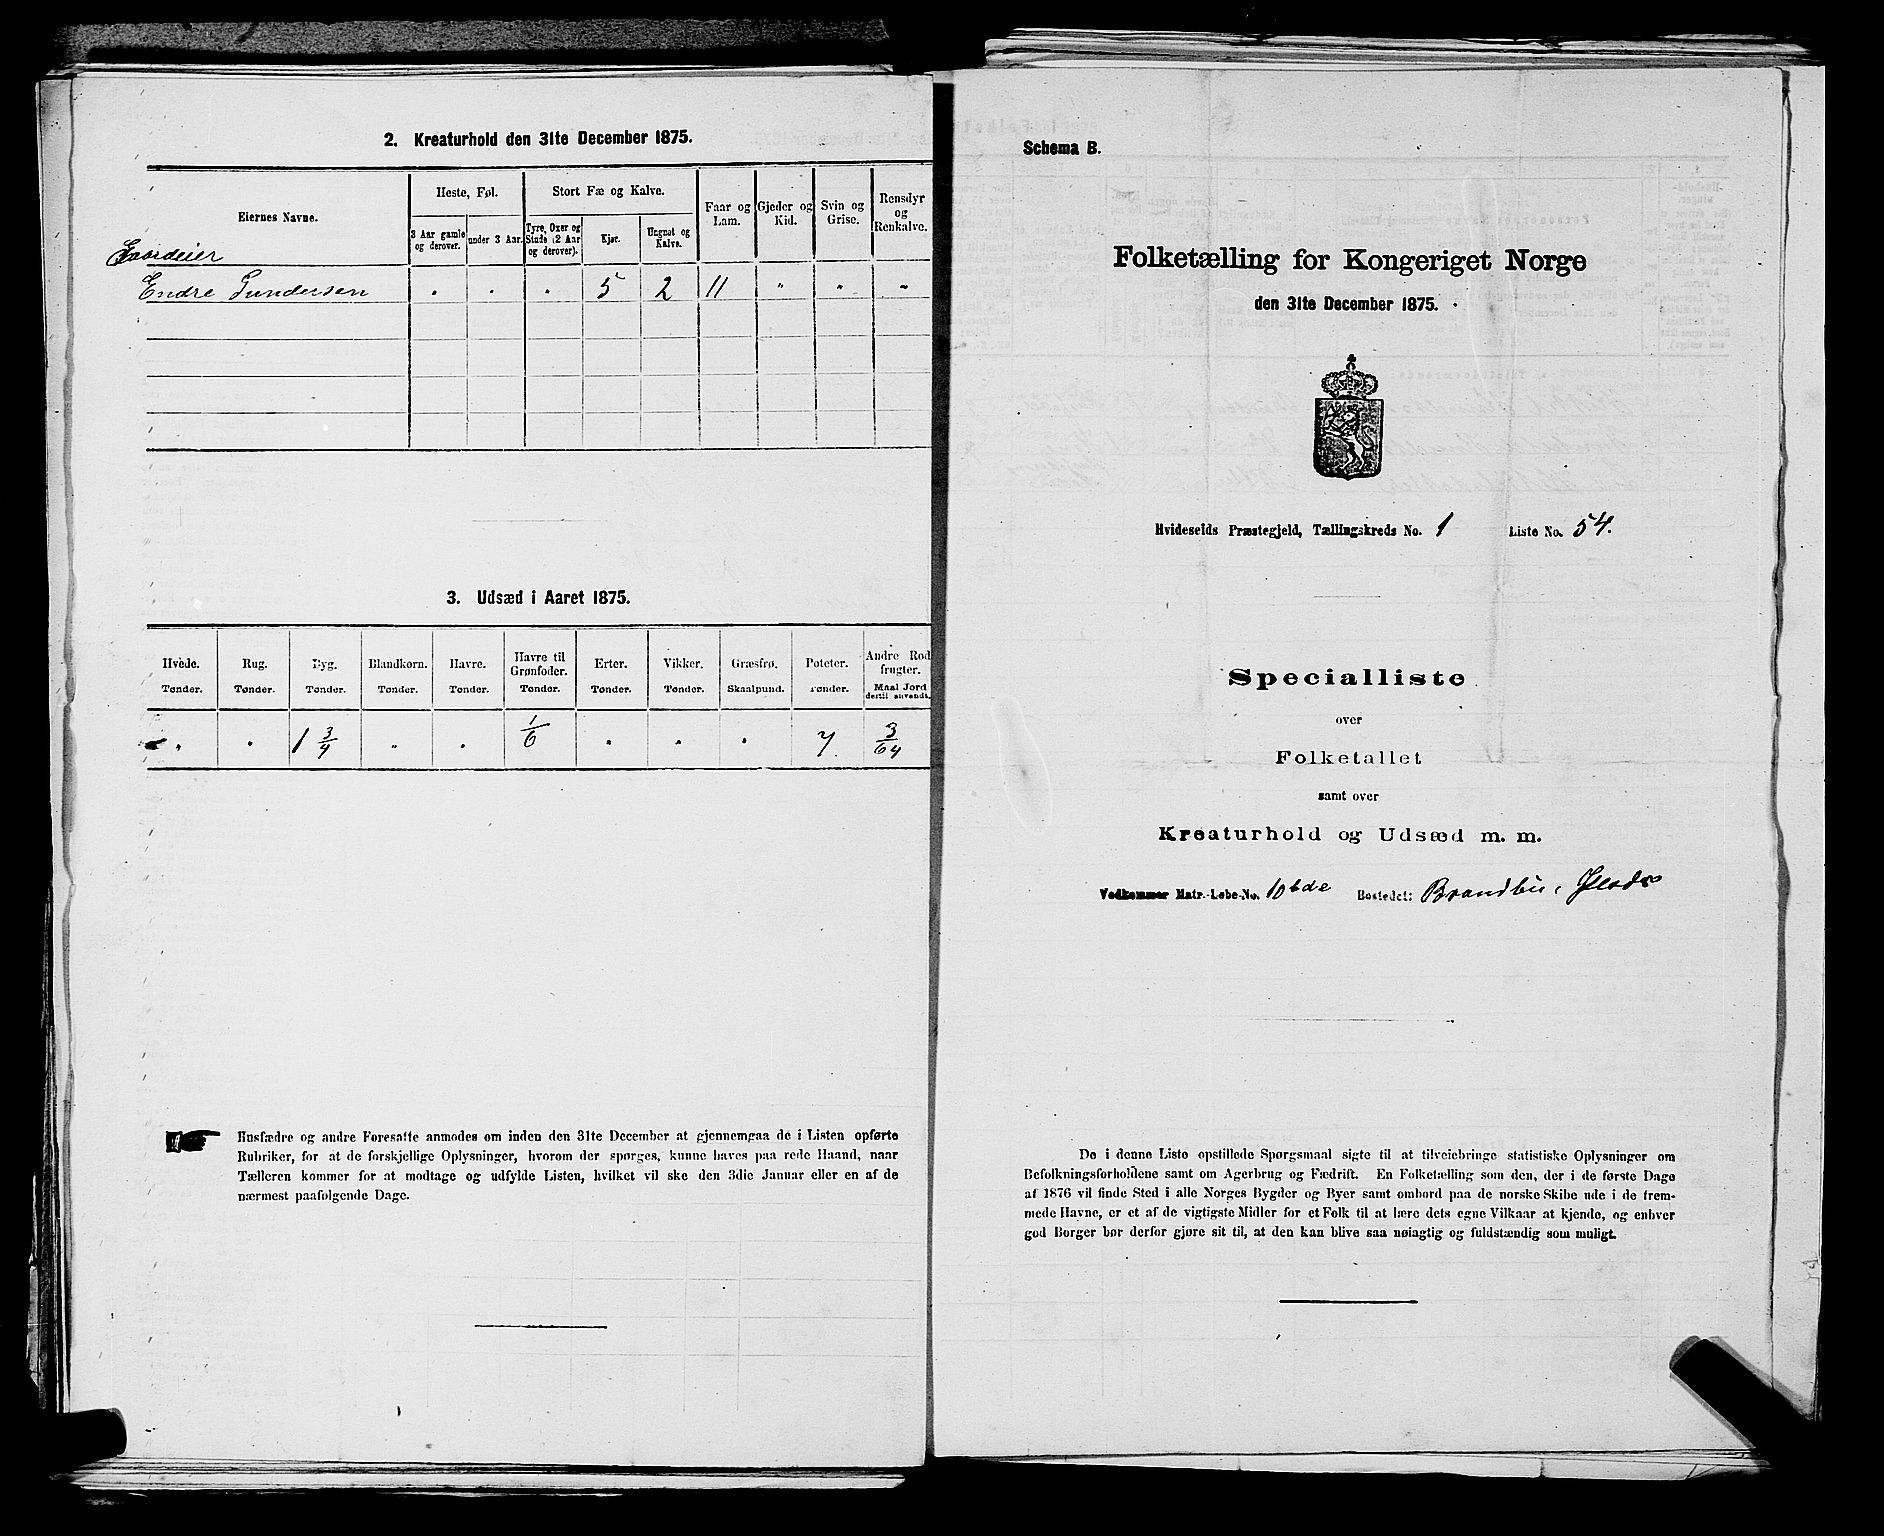 2. Kreaturhold den 31te December 1875.
Eiernes Navne.
Heste, Føl.
3 Aar gamle og derover.
under 3 Aar.
Stort Fæ og Kalve.
Tyre, Oxer og Stude (2 Aar og derover).
Kjør.
Ungnøt og Kalve.
Faar og Lam.
Gjeder og Kid.
Svin og Grise.
Rensdyr og Renkalve.
Gaardeier
Endre Gundersen " " " 5 2 11 " " "
3. Udsæd i Aaret 1875.
Hvede. Rug. Byg. Blandkorn. Havre. Havre til Grønfoder. Erter. Vikker. Græsfrø. Poteter. Andre Rodfrugter.
Tønder. Tønder. Tønder. Tønder. Tønder. Tønder. Tønder. Tønder. Skaalpund. Tønder. Maal Jord dertil anvendt.
" " 1 3/4 " " 1/6 " " " 7. 3/64
Husfædre og andre Foresatte anmodes om inden den 31te December at gjennemgaa de i Listen opførte
Rubriker, for at de forskjellige Oplysninger, hvorom der spørges, kunne haves paa rede Haand, naar
Tælleren kommer for at modtage og udfylde Listen, hvilket vil ske den 3die Januar eller en af de
nærmest paafølgende Dage.
Schema B.
Folketælling for Kongeriget Norge
den 31te December 1875.
Hvideseids Præstegjeld, Tællingskreds No. 1 Liste No. 54.
Specialliste
over
Folketallet
samt over
Kreaturhold og Udsæd m. m.
Vedkommer Matr.-Løbe-No. 10 bde Bostedet: Brandbu,
De i denne Liste opstillede Spørgsmaal sigte til at tilveiebringe statistiske Oplysninger om
Befolkningsforholdene samt om Agerbrug og Fædrift. En Folketælling som den, der i de første Dage
af 1876 vil finde Sted i alle Norges Bygder og Byer samt ombord paa de norske Skibe ude i de frem-
mede Havne, er et af de vigtigste Midler for et Folk til at lære dets egne Vilkaar at kjende, og enhver
god Borger bør derfor gjøre sit til, at den kan blive saa nøiagtig og fuldstændig som muligt.